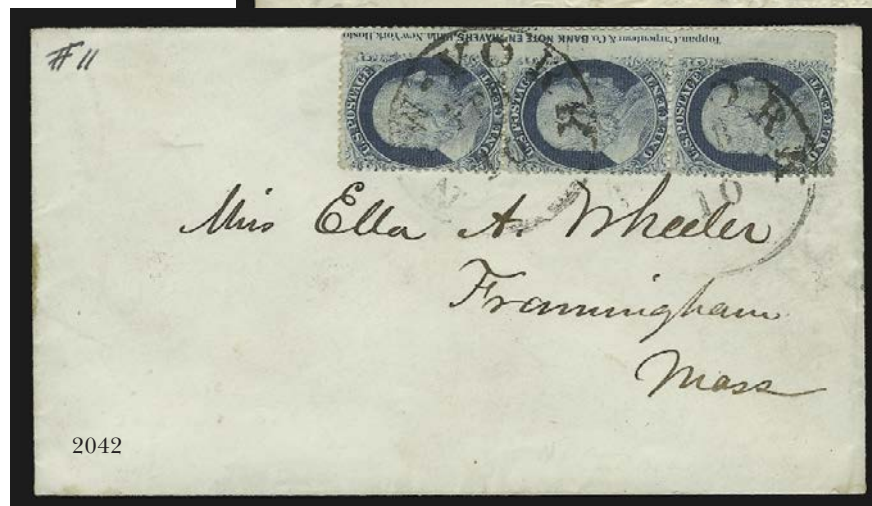 Toppan, Carpenter & Co. BANK NOTE ENGRAVERS, Phila. New York, Boston
# 11
U.S. POSTAGE ONE CENT
U.S. POSTAGE ONE CENT
U.S. POSTAGE ONE CENT
W-YORK
10
ORK
10
Miss Ella A. Wheeler
Framingham
Mass
2042